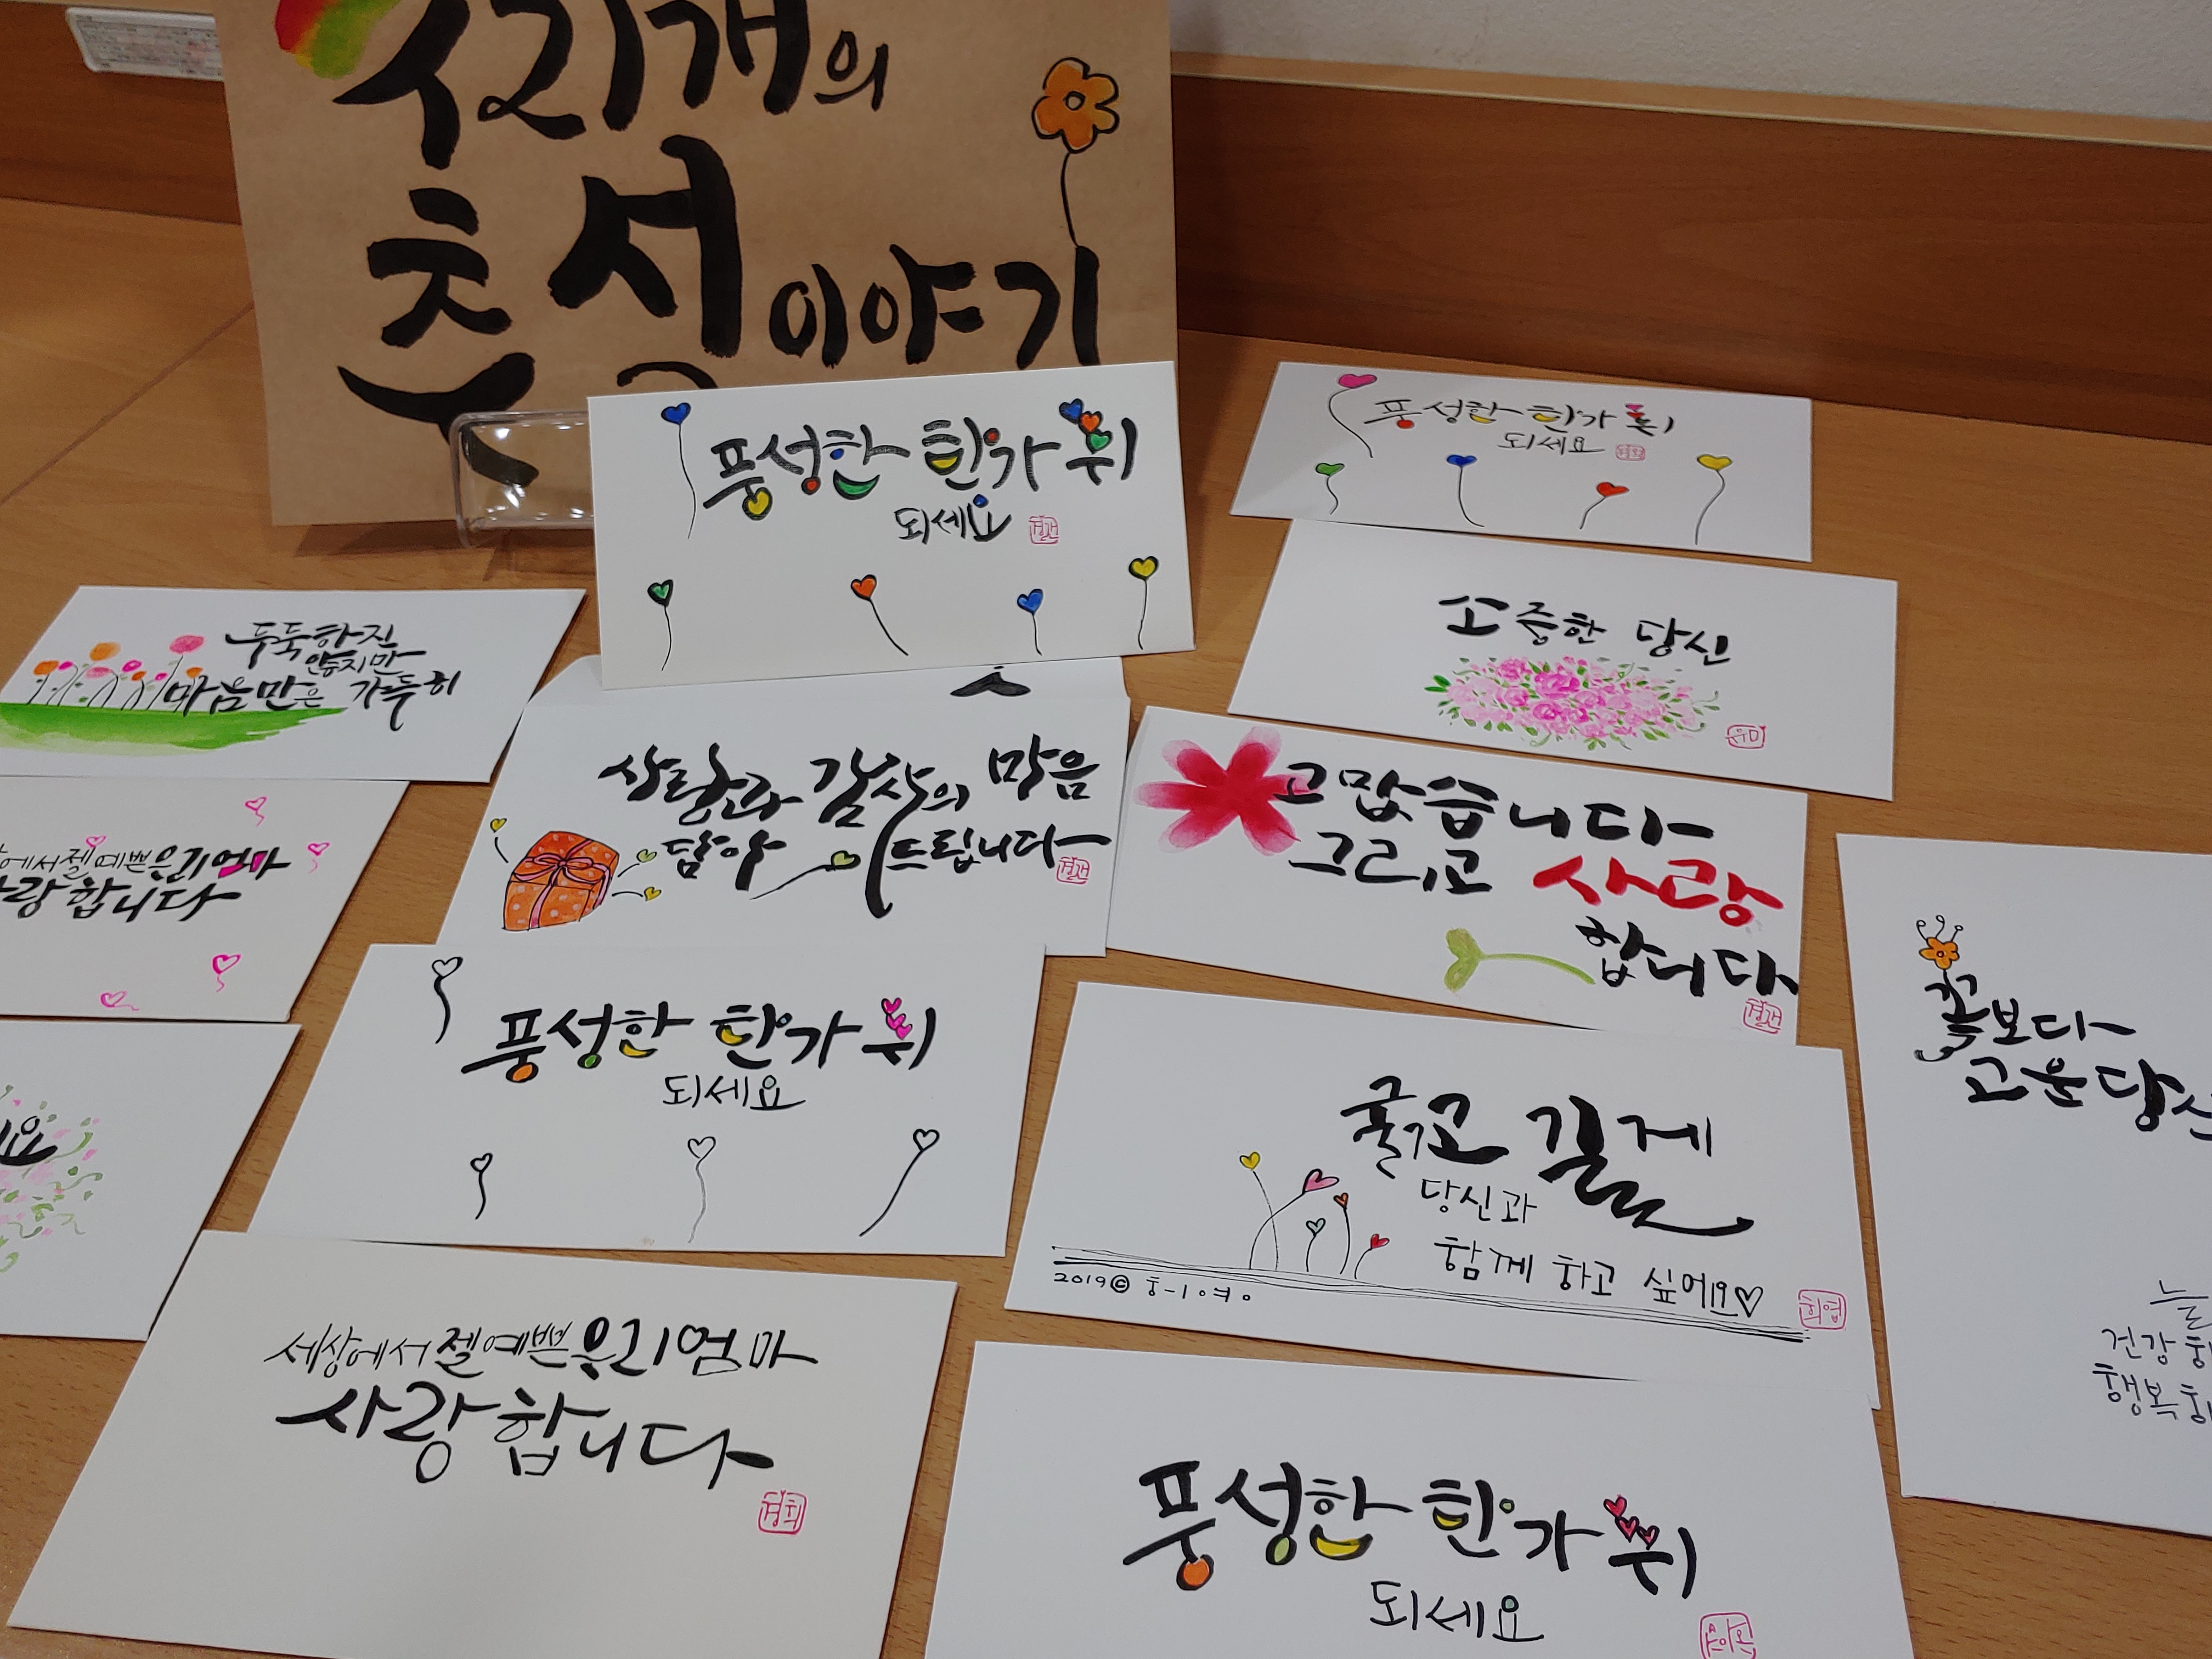 추석이야기
풍성한 한가위
되세요
풍성한 한가위
되세요
소중한 당신
두둑하진
않지만
마음만은 가득히
사랑과 감사의 마음
담아 드립니다
고맙습니다
그리고 사랑
합니다
에서 젤 예쁜 우리엄마
랑합니다
꽃보다
고운당신
풍성한 한가위
되세요
굵고 길게
당신과
함께 하고 싶어요♡
2019©
희영
요
늘
건강
행복
세상에서 젤 예쁜 우리엄마
사랑합니다
경희
풍성한 한가위
되세요